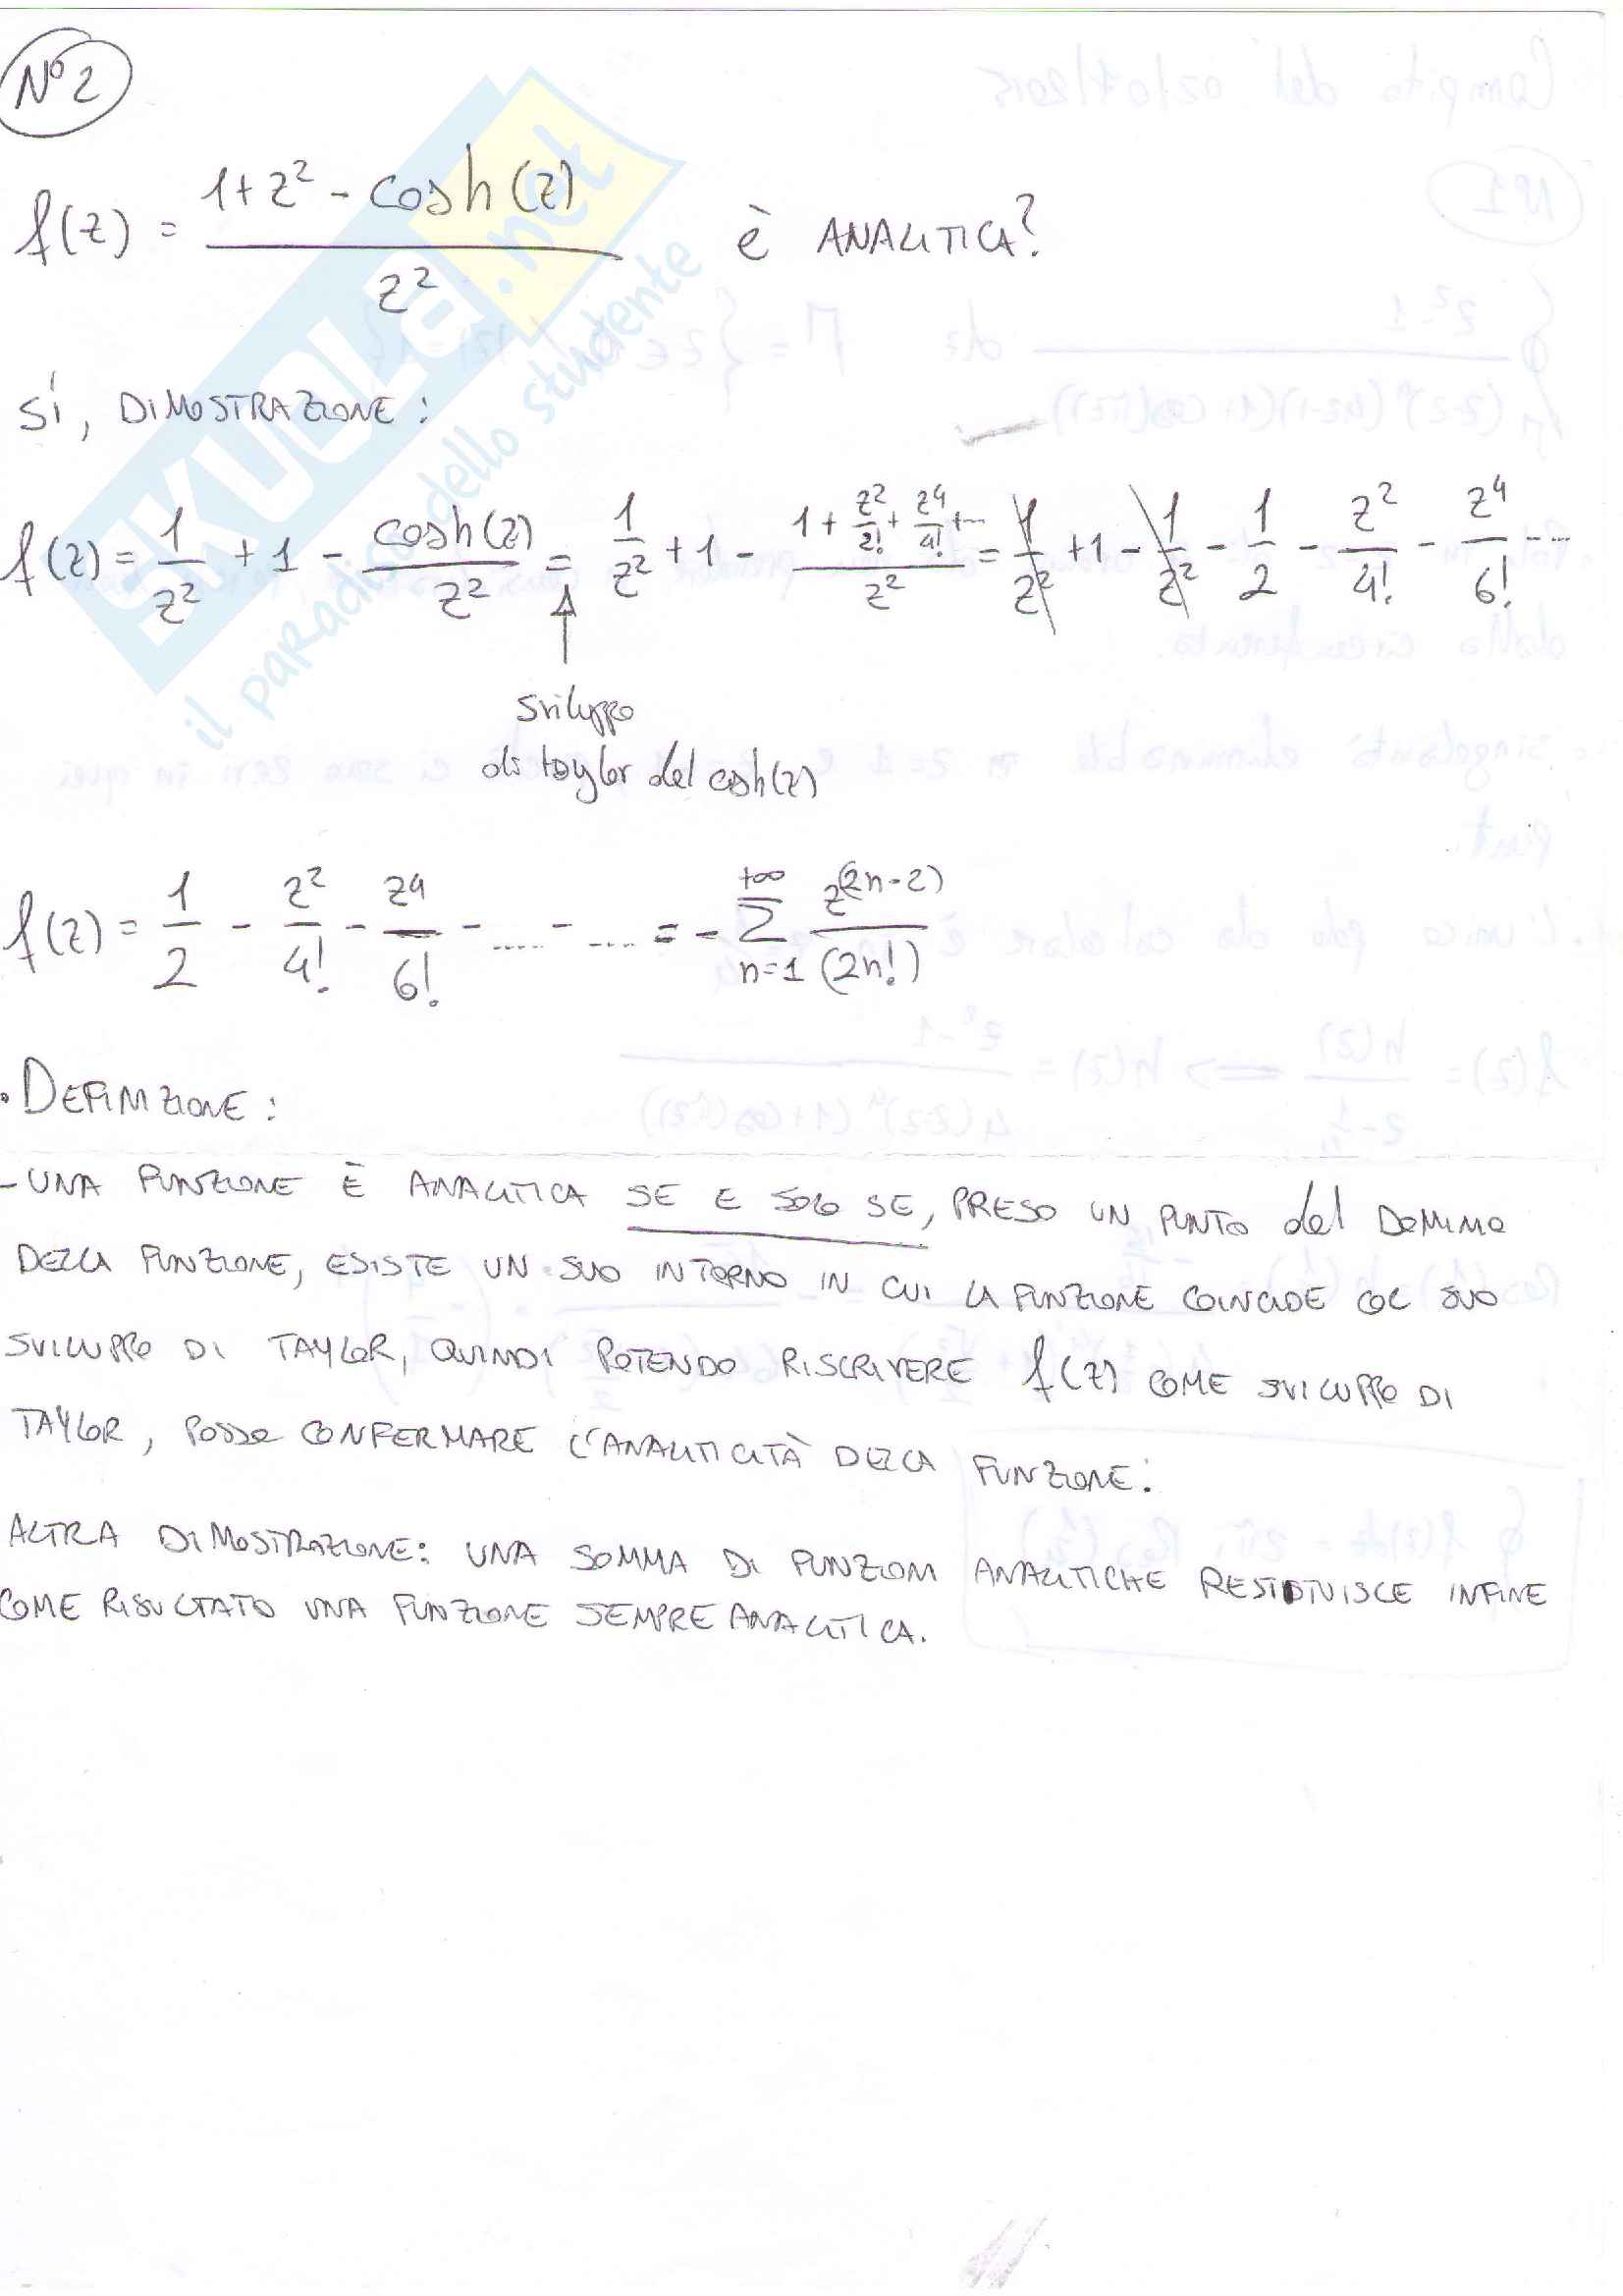 N° 2
f(z) = (1+z² - cosh(z)) / z² è ANALITICA?
SÌ, DIMOSTRAZIONE:
f(z) = 1/z² + 1 - cosh(z)/z² = 1/z² + 1 - (1 + z²/2! + z⁴/4! + ...)/z² = 1/z² + 1 - 1/z² - 1/2 - z²/4! - z⁴/6! ...
sviluppo
di taylor del cosh(z)
f(z) = 1/2 - z²/4! - z⁴/6! - .... - .... = - Σ_{n=1}^{+∞} z^(2n-2)/(2n!)
• DEFINIZIONE:
- UNA FUNZIONE È ANALITICA SE E SOLO SE, PRESO UN PUNTO del DOMINIO
DELLA FUNZIONE, ESISTE UN SUO INTORNO IN CUI LA FUNZIONE COINCIDE COL SUO
SVILUPPO DI TAYLOR, QUINDI POTENDO RISCRIVERE f(z) COME SVILUPPO DI
TAYLOR, POSSO CONFERMARE L'ANALITICITÀ DELLA FUNZIONE.
ALTRA DIMOSTRAZIONE: UNA SOMMA DI FUNZIONI ANALITICHE RESTITUISCE INFINE
COME RISULTATO UNA FUNZIONE SEMPRE ANALITICA.
SKUOLA.net
il paradiso dello studente